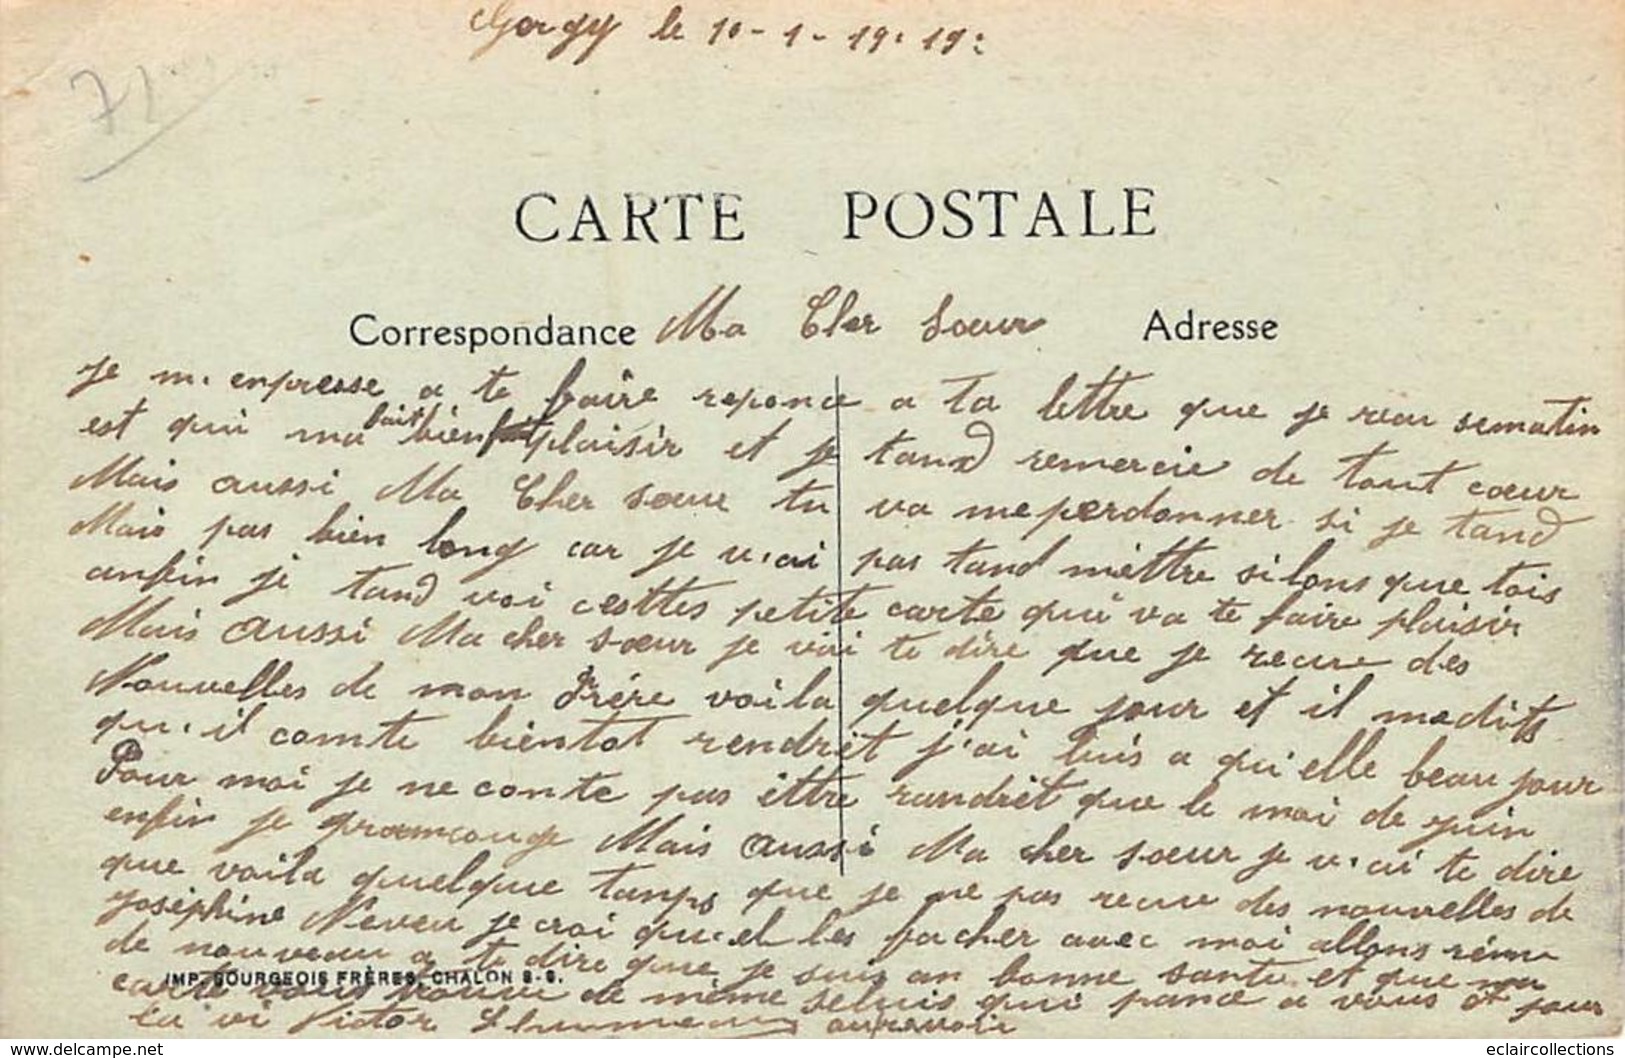 Gergy le 10-1-19.19:
72
CARTE POSTALE
Correspondance Ma Cher Sœur Adresse
je m. enpresse a te faire reponce a ta lettre que je recu sematin
est qui ma fait bien plaisir et je tand remercie de tout cœur
Mais aussi Ma Cher sœur tu va me perdonner si je tand
Mais pas bien long car je n.ai pas tand mèttre si lons que tois
anfin je tand voi cesttes petite carte qui va te faire plaisir
Mais aussi Ma cher sœur je vai te dire que je recue des
Nouvelles de mon Frére voila quelque jour et il madits
qu.il comte bientot rendrèt j'ai buis a qu'elle beau jour
Pour moi je ne conte pas ittre randrèt que le moi de juin
enfin je Mais aussi Ma cher sœur je v.ai te dire
que voila quelque tanps que je ne pas recue des nouvelles de
Joséphine Neveu je croi qu.el les facher avec moi allons
de nouveau a te dire que je suis an bonne sante. et que ma
IMP. BOURGEOIS FRÈRES, CHALON S-S.
carte vous de mème seluis qui pance a vous jour
Victor aurevoir
www.delcampe.net
eclaircollections